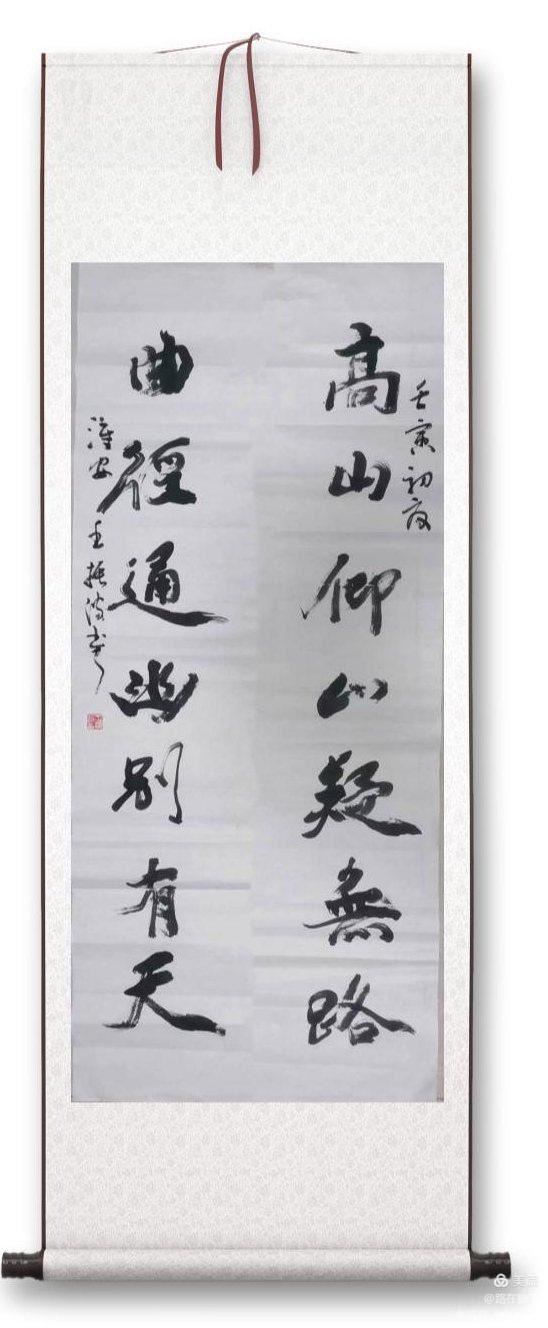 壬寅初夏
高山仰止疑無路
曲徑通幽別有天
淮安王振
美篇
@路在